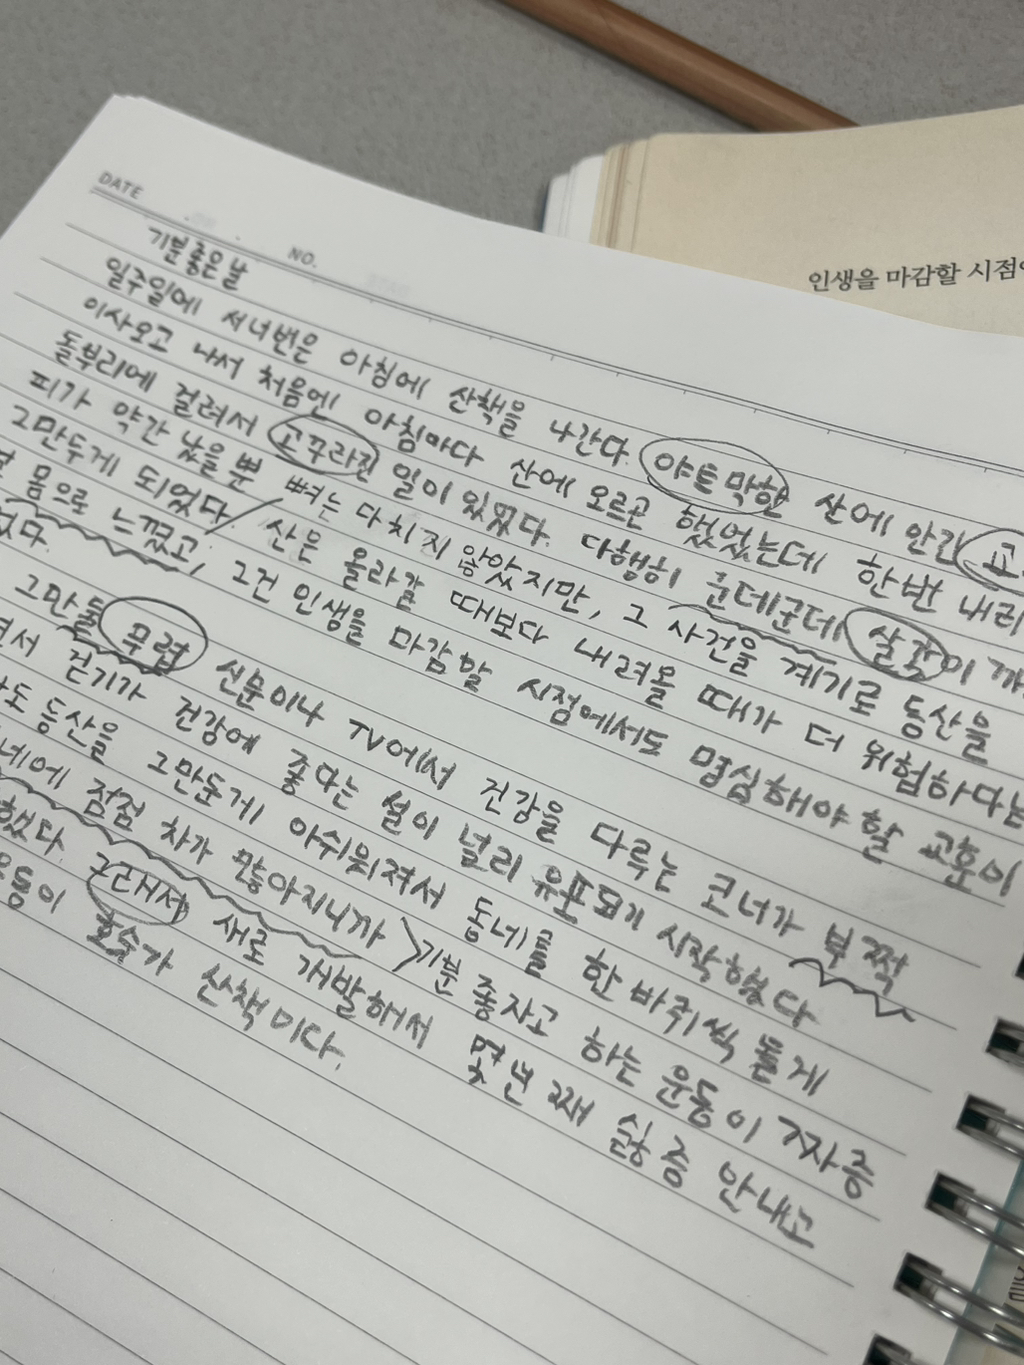 DATE
NO.
기분좋은 날
일주일에 서너번은 아침에 산책을 나간다. 야트막한 산에 안긴
이사오고 나서 처음엔 아침마다 산에 오르곤 했었는데 한번 내려
돌부리에 걸려서 고꾸라진 일이 있었다. 다행히 군데군데 살갗이 까
피가 약간 났을 뿐 뼈는 다치지 않았지만, 그 사건을 계기로 등산을
그만두게 되었다. 산은 올라갈 때보다 내려올 때가 더 위험하다는
몸으로 느꼈고, 그건 인생을 마감할 시점에서도 명심해야 할 교훈이
그만둘 무렵 신문이나 TV에서 건강을 다루는 코너가 부쩍
걷기가 건강에 좋다는 설이 널리 유포되기 시작했다
등산을 그만둔게 아쉬워져서 동네를 한 바퀴씩 돌게
점점 차가 많아지니까 기분 좋자고 하는 운동이 짜증
했다. 근래서 새로 개발해서 몇 년 째 싫증 안내고
호숫가 산책이다.
인생을 마감할 시점